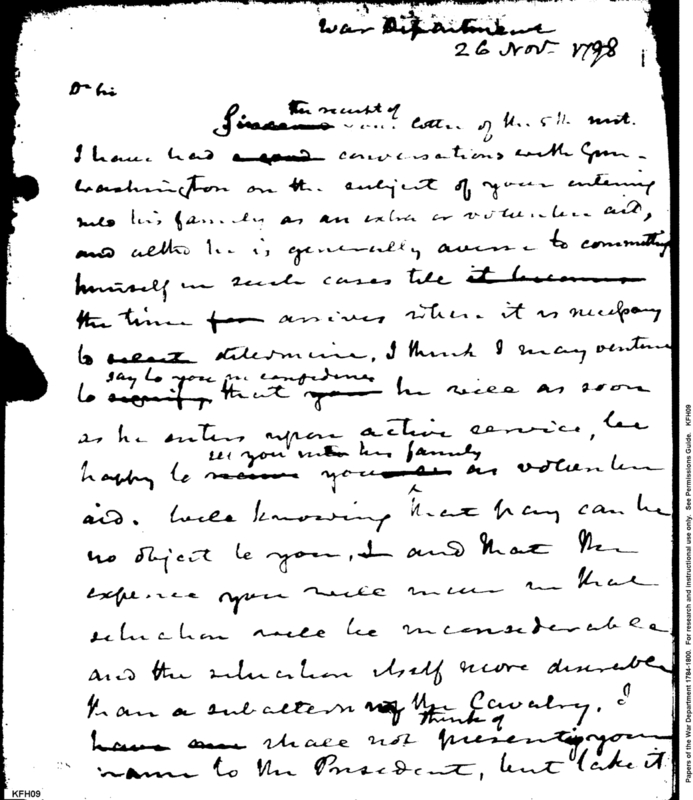 War Department
26 Nov. 1798
Dr Sir
the receipt of
Since your letter of the 5th inst.
I have had a good conversations with Genl
Washington on the subject of your entering
into his family as an extra or volunteer aid,
and altho he is generally averse to committing
himself in such cases till it becomes
the time for arrives when it is necessary
to select determine, I think I may venture
say to you in confidence
to signify that your he will as soon
as he enters upon active service, be
see you into his family
happy to receive you as volunteer
aid. Well knowing that pay can be
no object to you, I and that the
expence you will incur in that
situation will be inconsiderable
and the situation itself more desireable
than a subaltern of the Cavalry, I
think of
have shall not presenting your
name to the President, but take it
KFH09
Papers of the War Department 1784-1800. For research and instructional use only. See Permissions Guide. KFH09